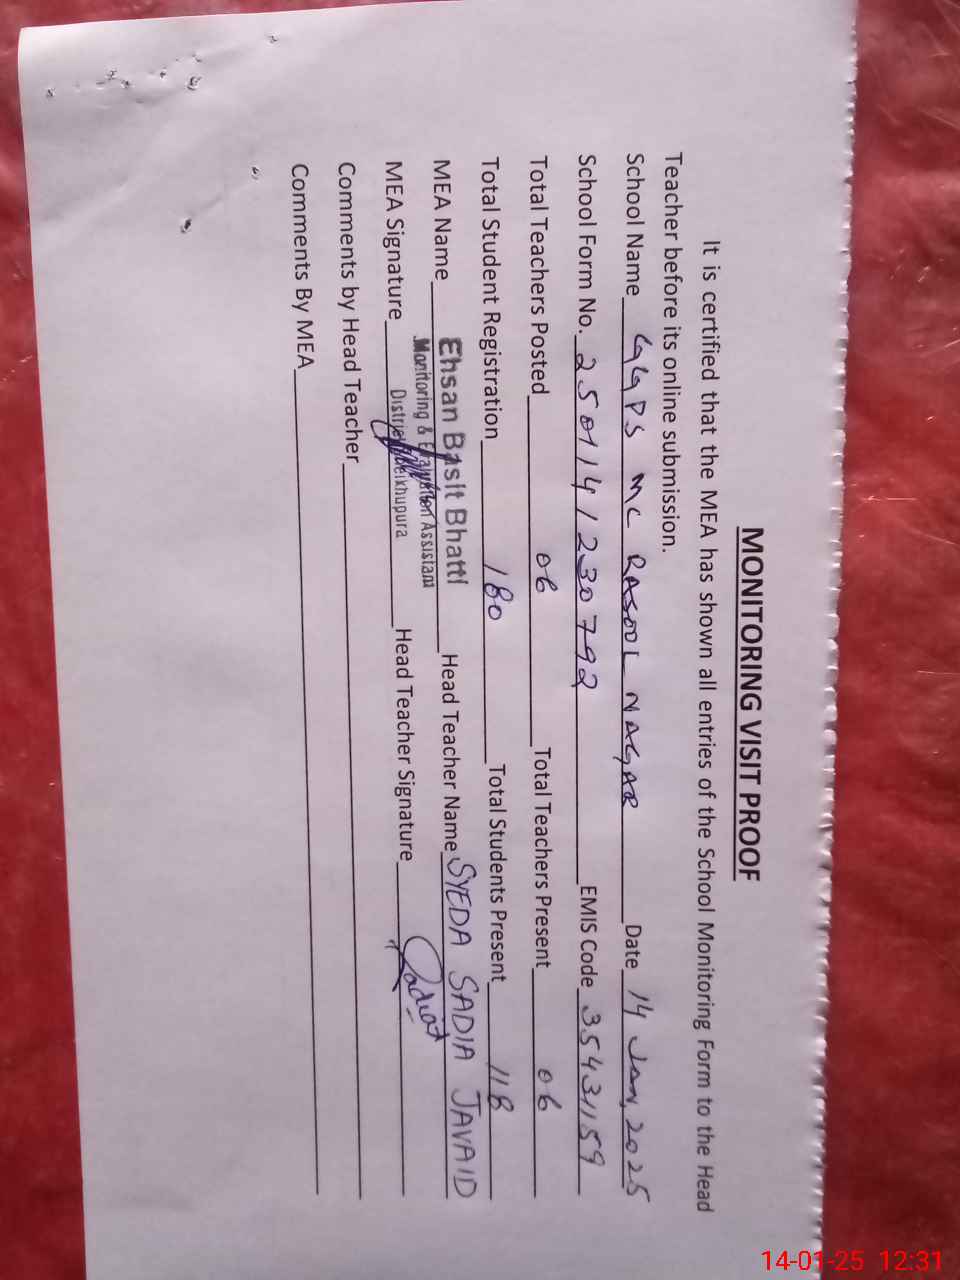 MONITORING VISIT PROOF
It is certified that the MEA has shown all entries of the School Monitoring Form to the Head
Teacher before its online submission.
School Name GGPS MC RASOOL NAGAR Date 14 Jan, 2025
School Form No. 250114123079 2 EMIS Code 35431159
Total Teachers Posted 06 Total Teachers Present 06
Total Student Registration 180 Total Students Present 118
MEA Name Ehsan Basit Bhatti Head Teacher Name SYEDA SADIA JAVAID
Monitoring & Evaluation Assistant
MEA Signature District Sheikhupura Head Teacher Signature Sadia
Comments by Head Teacher
Comments By MEA
14-01-25 12:31